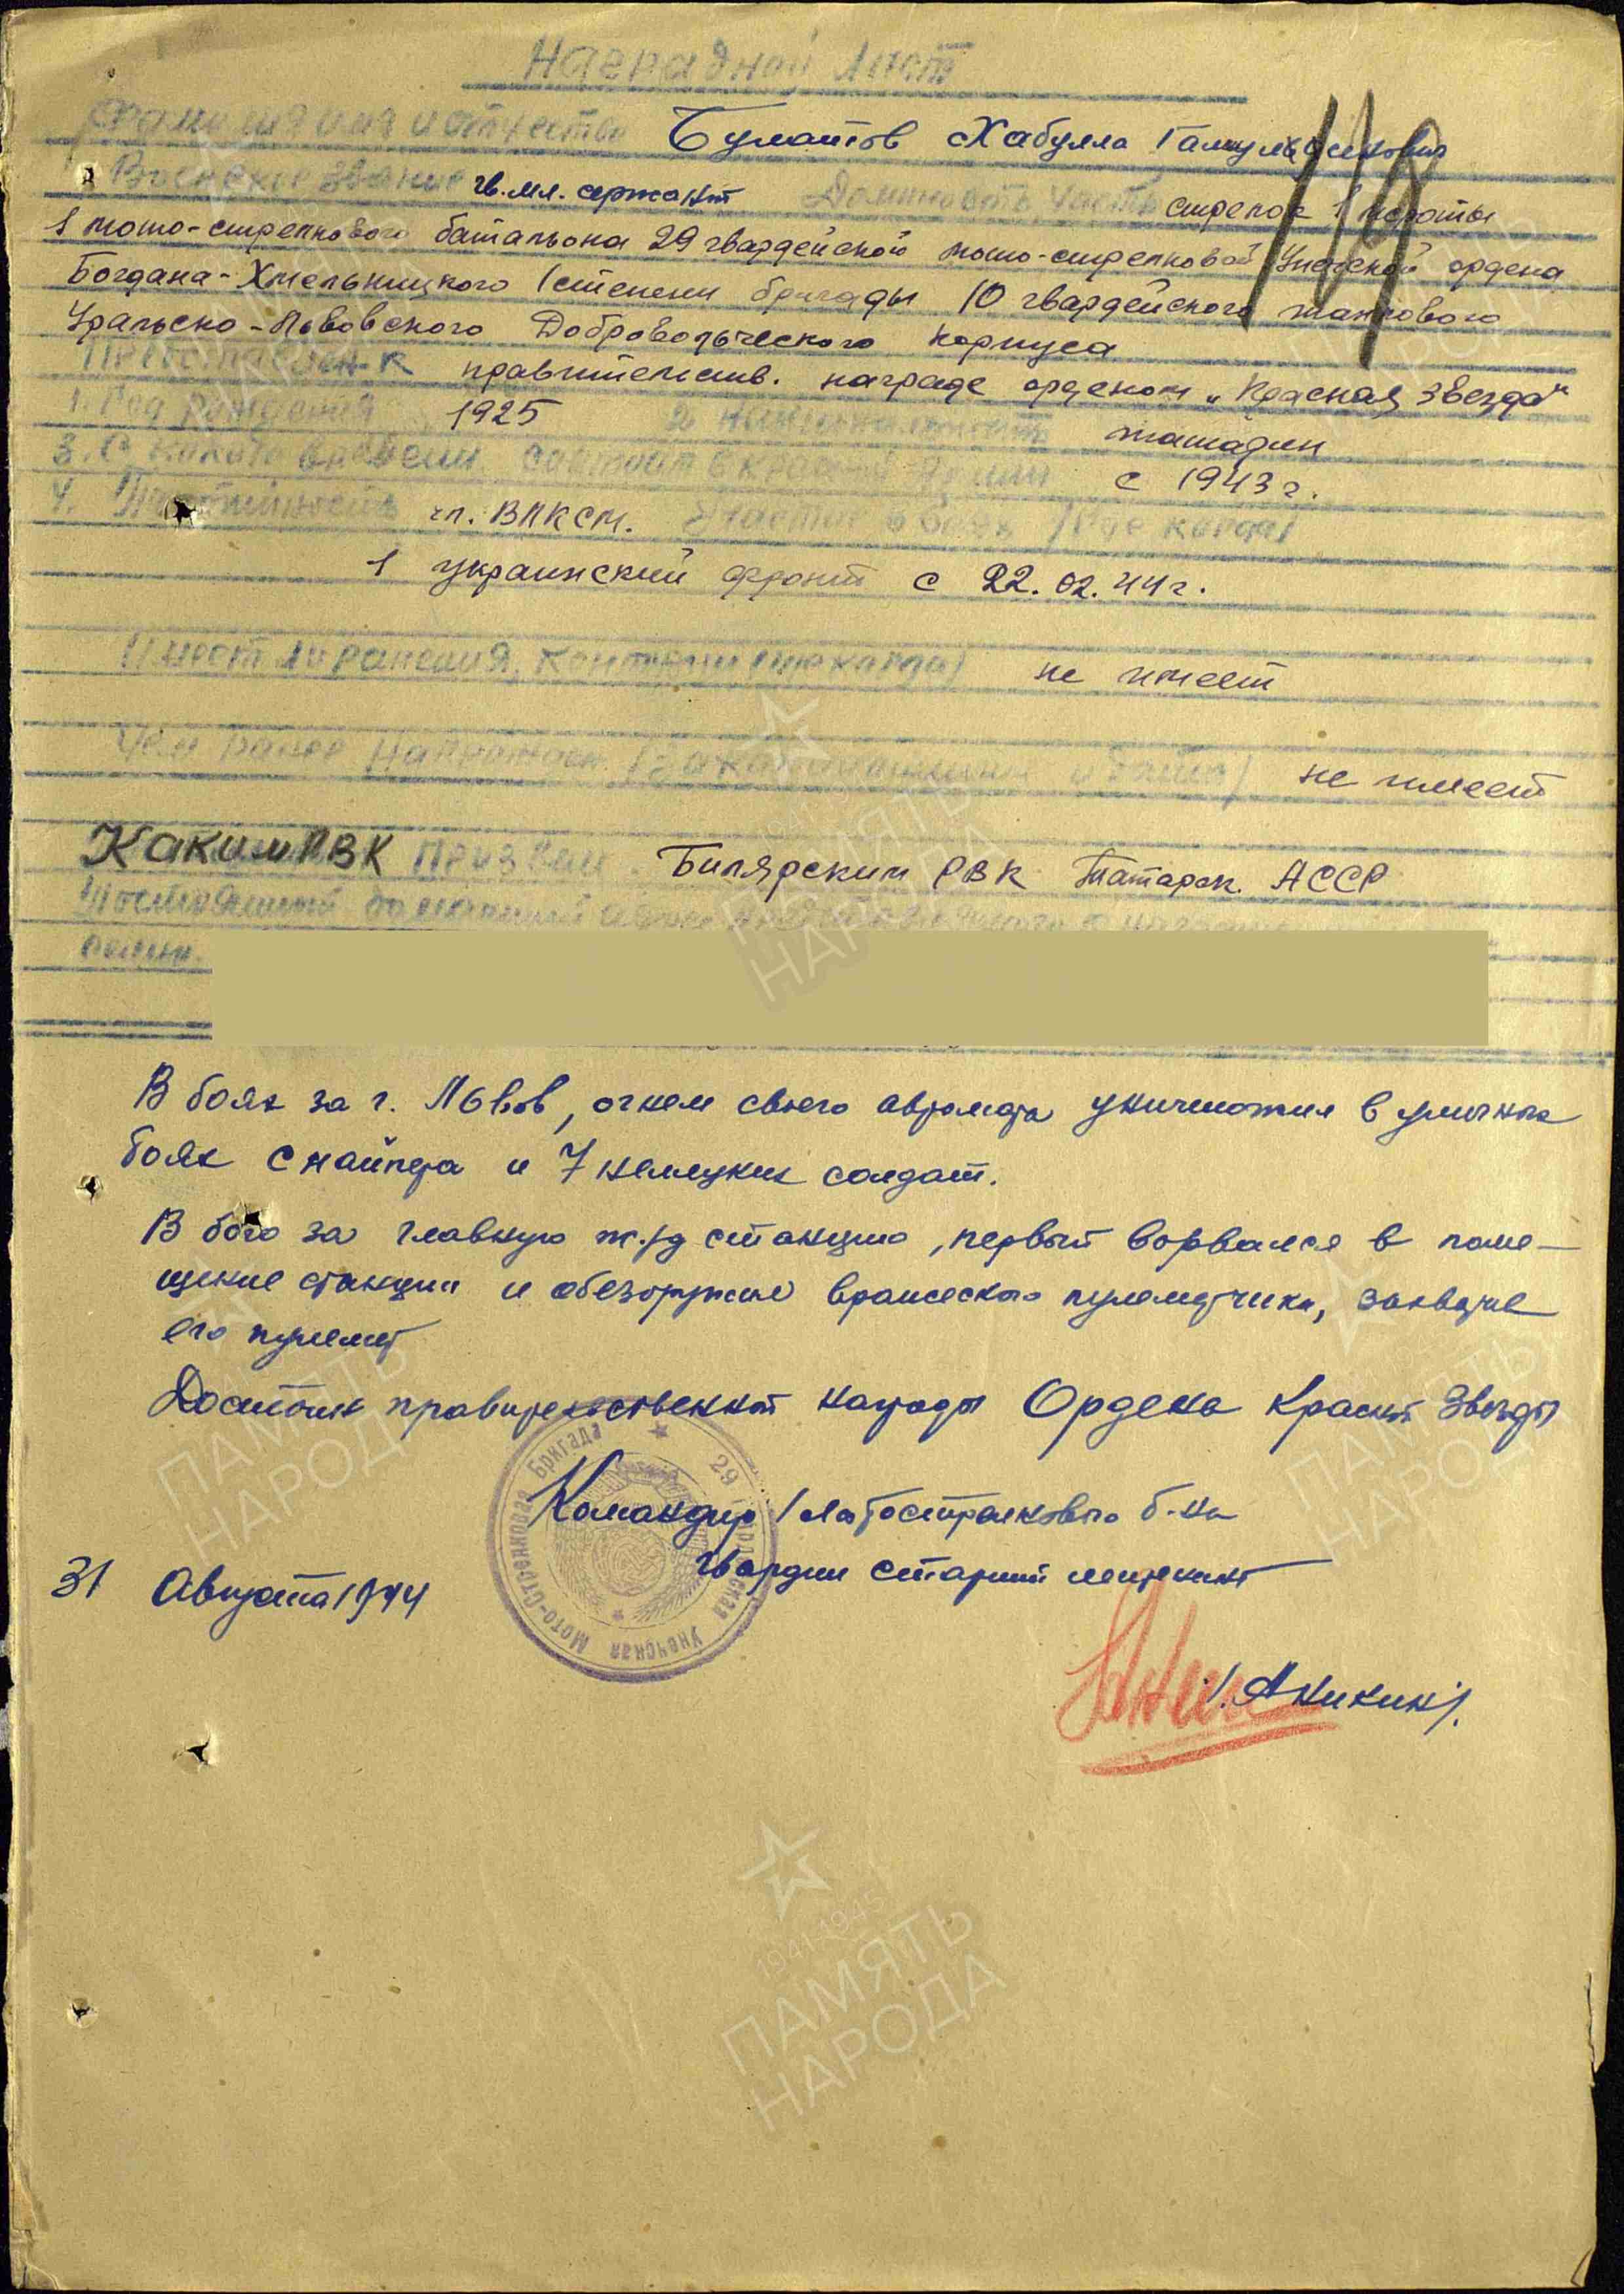 Наградной лист
Фамилия имя и отчество Булатов Хабулла
Воинское звание гв. мл. сержант Должность, часть стрелок 1 роты
1 мото-стрелкового батальона 29 гвардейской мото-стрелковой Унечской ордена
Богдана-Хмельницкого I степени бригады 10 гвардейского танкового
Уральско-Львовского Добровольческого корпуса
Представлен к правительств. награде орденом „Красная звезда“
1. Год рождения 1925 2. национальность татарин
3. С какого времени состоит в красной Армии с 1943 г.
4. Партийность чл. ВЛКСМ. Участие в боях (где когда)
1 украинский фронт с 22.02.44 г.
Имеет ли ранения, контузии (где когда) не имеет
Чем ранее награжден (за какие отличия и дата) не имеет
Каким РВК призван. Билярским РВК Татарск. АССР
Постоянный домашний адрес представляемого к награде
семьи.
В боях за г. Львов, огнем своего автомата уничтожил в уличных
боях снайпера и 7 немецких солдат.
В бою за главную ж/д станцию, первый ворвался в поме-
щение станции и обезоружил вражеского пулеметчика, захватив
его пулемет
Достоин правительственной награды Ордена Красной Звезды
Командир 1 мотострелкового б-на
гвардии старший лейтенант
31 Августа 1944
/Аникин/.
29 Гвардейская Унечская Мото-Стрелковая Бригада
1941-1945
ПАМЯТЬ
НАРОДА